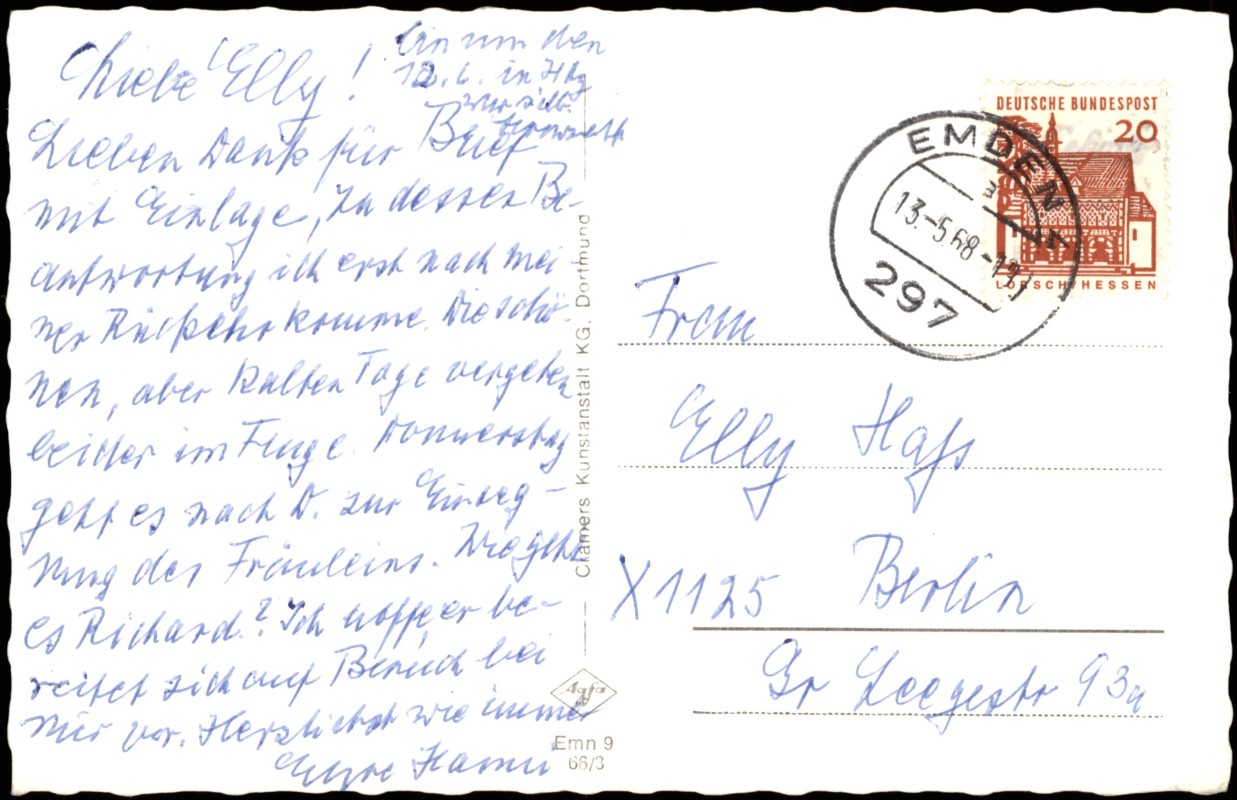 Liebe Elly!
Bin um den
12.6. in Hbg
zurück.
Lieben Dank für Brief
mit Einlage, zu dessen Be-
antwortung ich erst nach mei-
ner Rückkehr komme. Die schö-
nen, aber kalten Tage vergehen
leider im Fluge. Donnerstag
geht es nach D. zur Einseg-
nung des Fräuleins. Wie geht
es Richard? Ich hoffe, er be-
reitet sich auf Besuch bei
mir vor. Herzlichst wie immer
Hanni
Cramers Kunstanstalt KG. Dortmund
Agfa
Emn 9
66/3
DEUTSCHE BUNDESPOST
20
LORSCH/HESSEN
EMDEN 1
a
13.-5.68-19
297
Frau
Elly Hass
X1125 Berlin
Gr Leegestr 93a